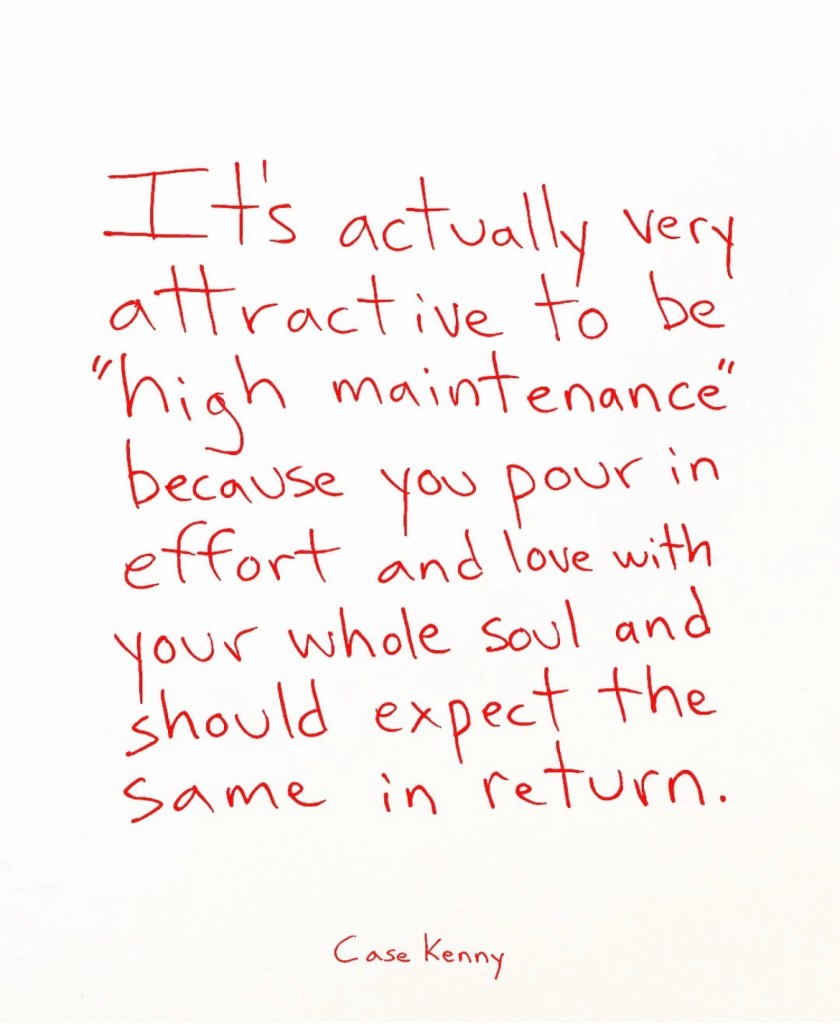 It's actually very
attractive to be
"high maintenance"
because you pour in
effort and love with
your whole soul and
should expect the
same in return.
Case Kenny